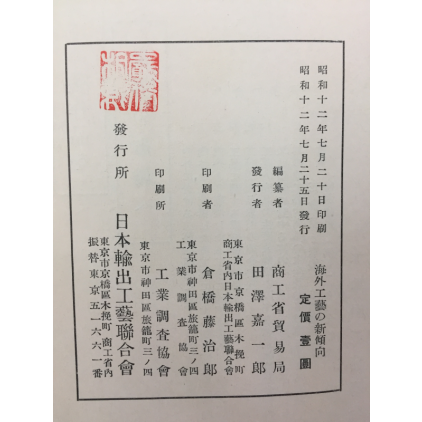 昭和十二年七月二十日印刷
昭和十二年七月二十五日發行
海外工藝の新傾向
定價壹圓
編纂者
商工省貿易局
發行者
東京市京橋區木挽町
商工省内日本輸出工藝聯合會
田澤嘉一郎
印刷者
東京市神田區旅籠町三ノ四
工業調査協會
倉橋藤治郎
印刷所
東京市神田區旅籠町三ノ四
工業調査協會
發行所
東京市京橋區木挽町商工省内
日本輸出工藝聯合會
振替東京五一六六一番